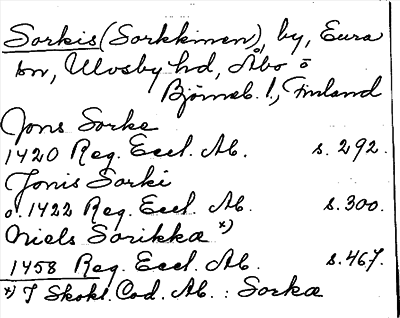 Sorkis (Sorkkinen), by, Eura
sn, Ulvsby hd, Åbo o
Björneb. l., Finland
Jons Sorke
1420 Reg. Eccl. Ab. s. 292.
Jonis Sorki
o. 1422 Reg. Eccl. Ab. s. 300.
Niels Sorikka *)
1458 Reg. Eccl. Ab. s. 467.
*) I Skokl. Cod. Ab. : Sorka